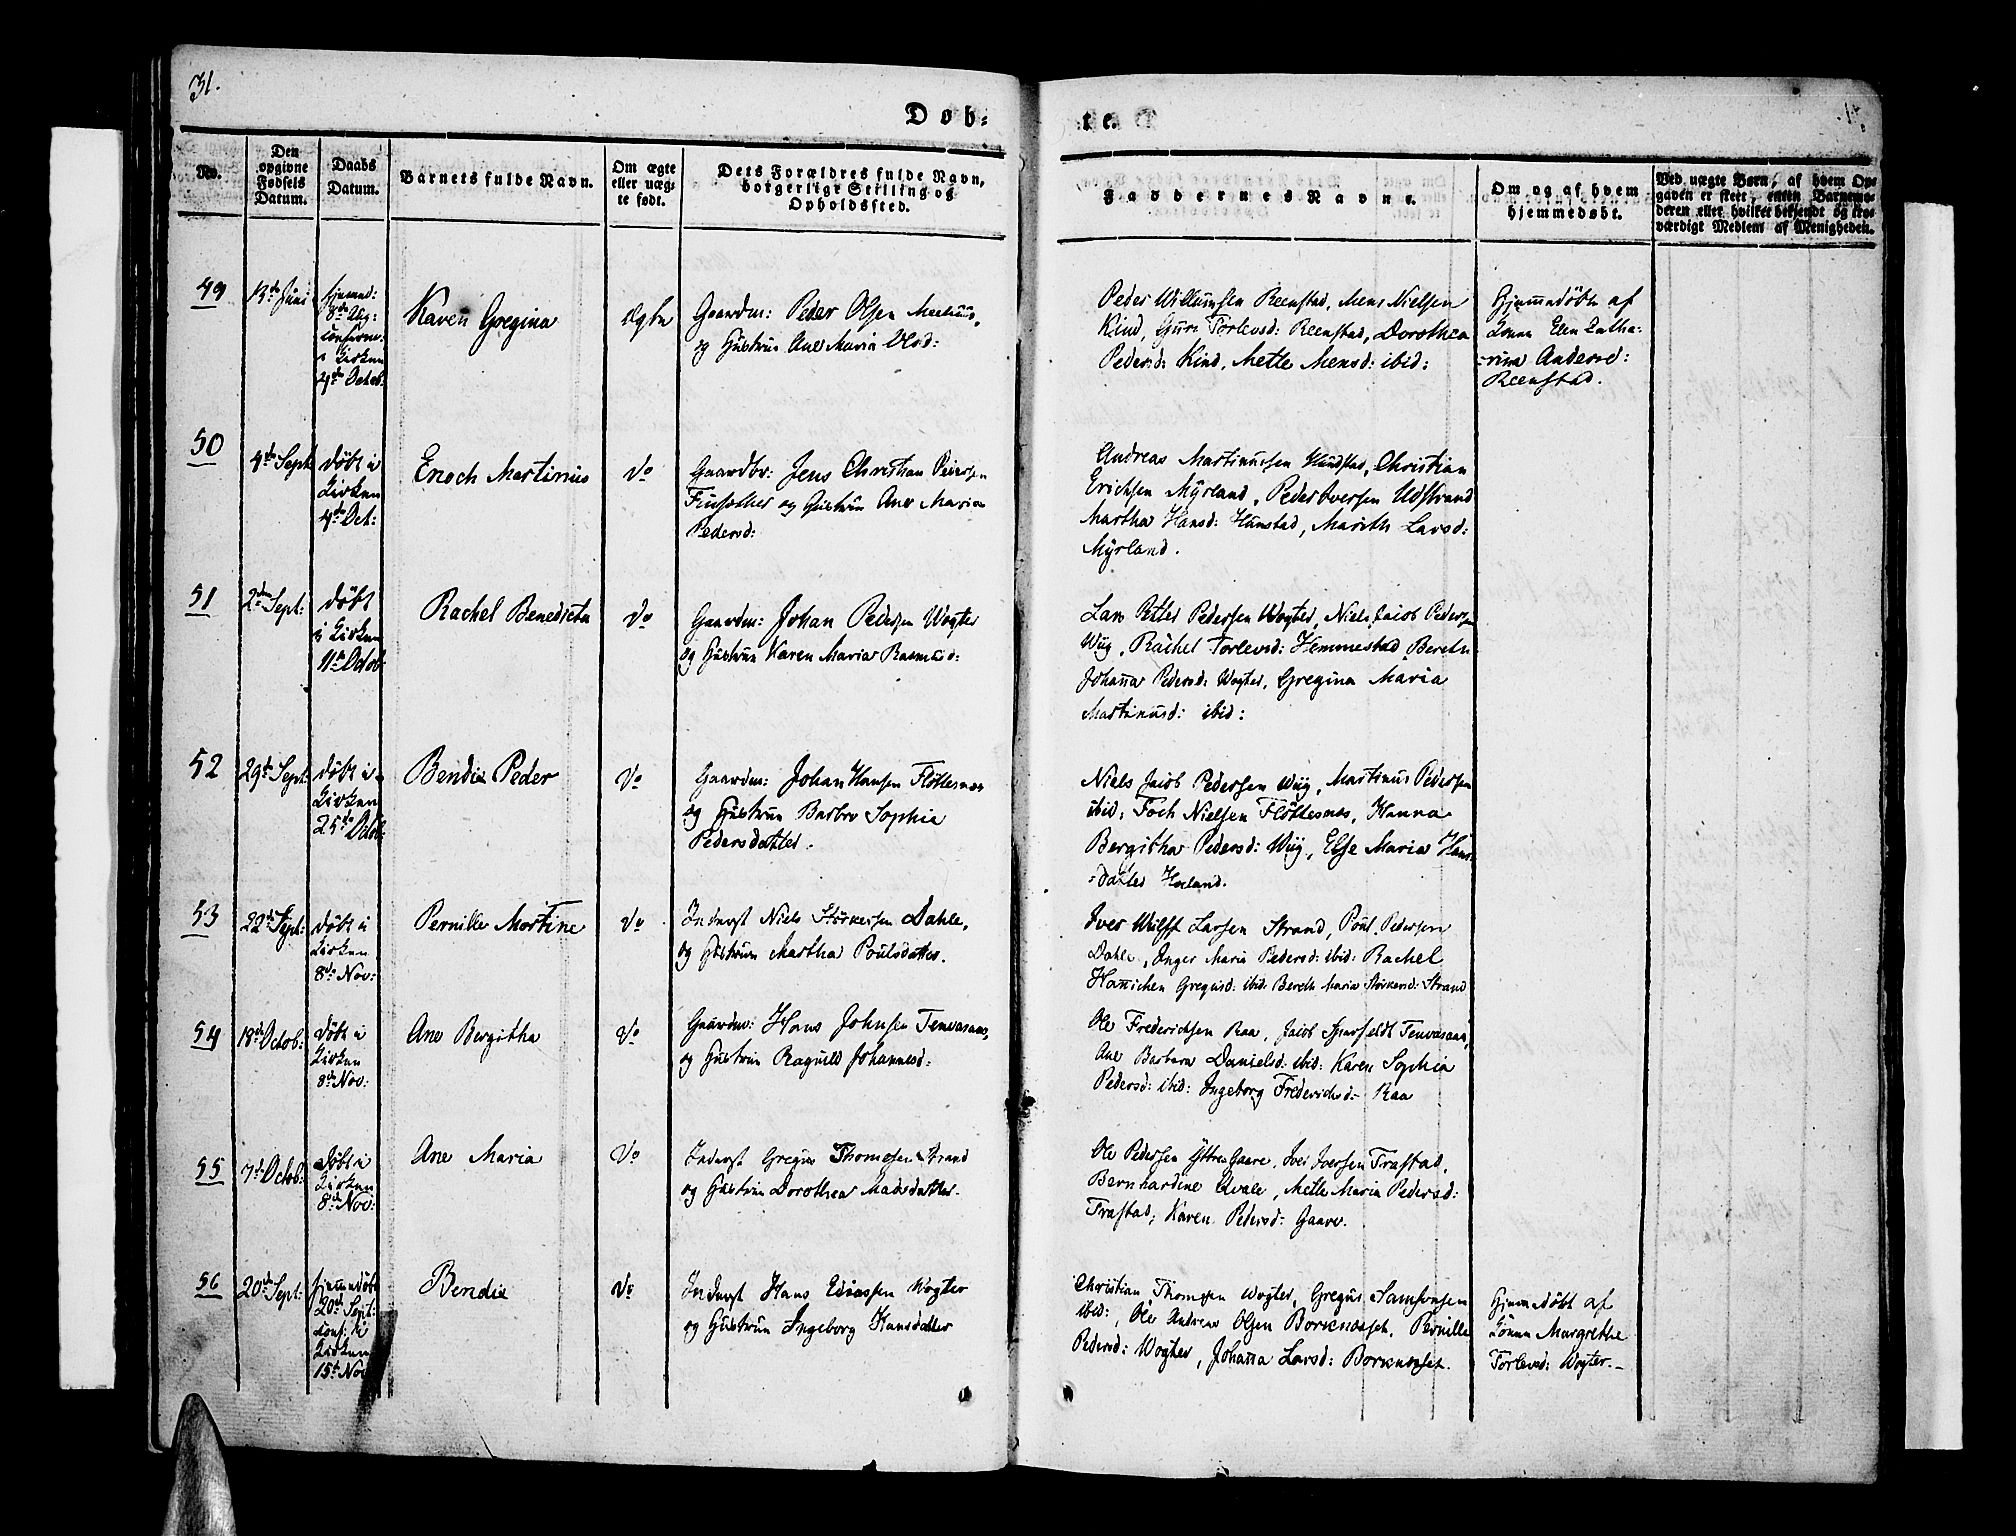 31.
Døb-
te.
No.
Den
opgivne
Fødsels
Datum.
Daabs
Datum.
Barnets fulde Navn.
Om ægte
eller uæg-
te født.
Dets Forældres fulde Navn,
borgerlige Stilling og
Opholdssted.
Faddernes Navne.
Om og af hvem
hjemmedøbt.
Ved uægte Børn, af hvem Op-
gaven er skeet, enten Barnemo-
deren eller hvilket bekjendt og tro-
værdigt Medlem af Menigheden.
49
13de Juni
hjemmd:
8de Aug:
confirm:
i Kirken
4de Octob:
Karen Gregina
ægte
Gaardm: Peder Olsen
og Hustrue Ane Maria Olsd:
Peder Willumsen Reenstad, Mens Nielsen
Kind, Guri Torlevsd: Reenstad, Dorothea
Pedersd: Kind, Mette Mensd: ibid:
Hjemmedöbt af
Konen Elen Catha-
-rina Andersd:
Reenstad.
50
4de Sept:
döbt i
Kirken
4de Oct:
Enoch Martinius
do
Gaardbr: Jens Christian Peiersen
og Hustrue Ane Maria
Pedersd:
Andreas Martinussen Hunstad, Christian
Erichsen Myrland, Peder Iversen Udstrand
Martha Hansd: Hunstad, Marith Larsd:
Myrland.
51
2den Sept:
döbt
i Kirken
11te Octob:
Rachel Benedicta
do
Gaardm: Johan Pedersen Wogter
og Hustrue Karen Maria Rasmusd:
Lars Peter Pedersen Wogter, Niels Jacob Pedersen
Wiig, Rachel Torlevsd: Hemmestad, Bereth
Johanna Pedersd: Wogter, Gregina Maria
Martinusd: ibid:
52
29de Sept:
döbt i
Kirken
25de Octob:
Bendix Peder
do
Gaardm: Johan Hansen Flöttesnes
og Hustrue Barbro Sophia
Pedersdatter.
Niels Jacob Pedersen Wiig, Martinus Pedersen
ibid, Foch Nielsen Flöttesnes, Hanna
Bergitha Pedersd: Wiig, Else Maria Hans-
-datter Hoeland.
53
22de Sept:
döbt i
Kirken
8de Nov:
Pernille Martine
do
Inderst Niels Störkersen Dahle,
og Hustrue Martha Poulsdatter.
Iver Wulff Larsen Strand, Poul Pedersen
Dahle, Inger Maria Pedersd: ibid: Rachel
Hannichen Gregusd: ibid: Bereth Maria Störkersd: Strand
54
18de Octob:
döbt i
Kirken
8de Nov:
Ane Bergitha
do
Gaardm: Hans Johnsen Tenvasaas,
og Hustrue Ragnild Johannesd:
Ole Frederichsen Raa, Jacob Sparfeldt Tenvasaas,
Ane Barbara Danielsd: ibid: Karen Sophia
Pedersd: ibid: Ingeborg Frederichsd:- Raa
55
7de Octob:
döbt i
Kirken
8de Nov:
Ane Maria
do
Inderst Gregus Thomesen Strand
og Hustrue Dorothea Madsdatter.
Ole Pedersen Yttre Gaare, Iver Iversen Trastad,
Bernhardine Qvale, Mette Maria Pedersd:
Trastad, Karen Pedersd: Gaare.
56
20de Sept:
hjemmedöbt
20de Sept:
conf: i
Kirken
15de Nov:
Bendix
do
Inderst Hans Eliassen Wogter
og Hustrue Ingeborg Hansdatter
Christian Thomesen Wogter, Gregus Samsonsen
ibid:, Ole Andreas Olsen Borkenæset, Pernille
Pedersd: Wogter, Johanna Larsd: Borkenæset.
Hjemmedöbt af
Konen Margrethe
Torlevsd: Wogter.-